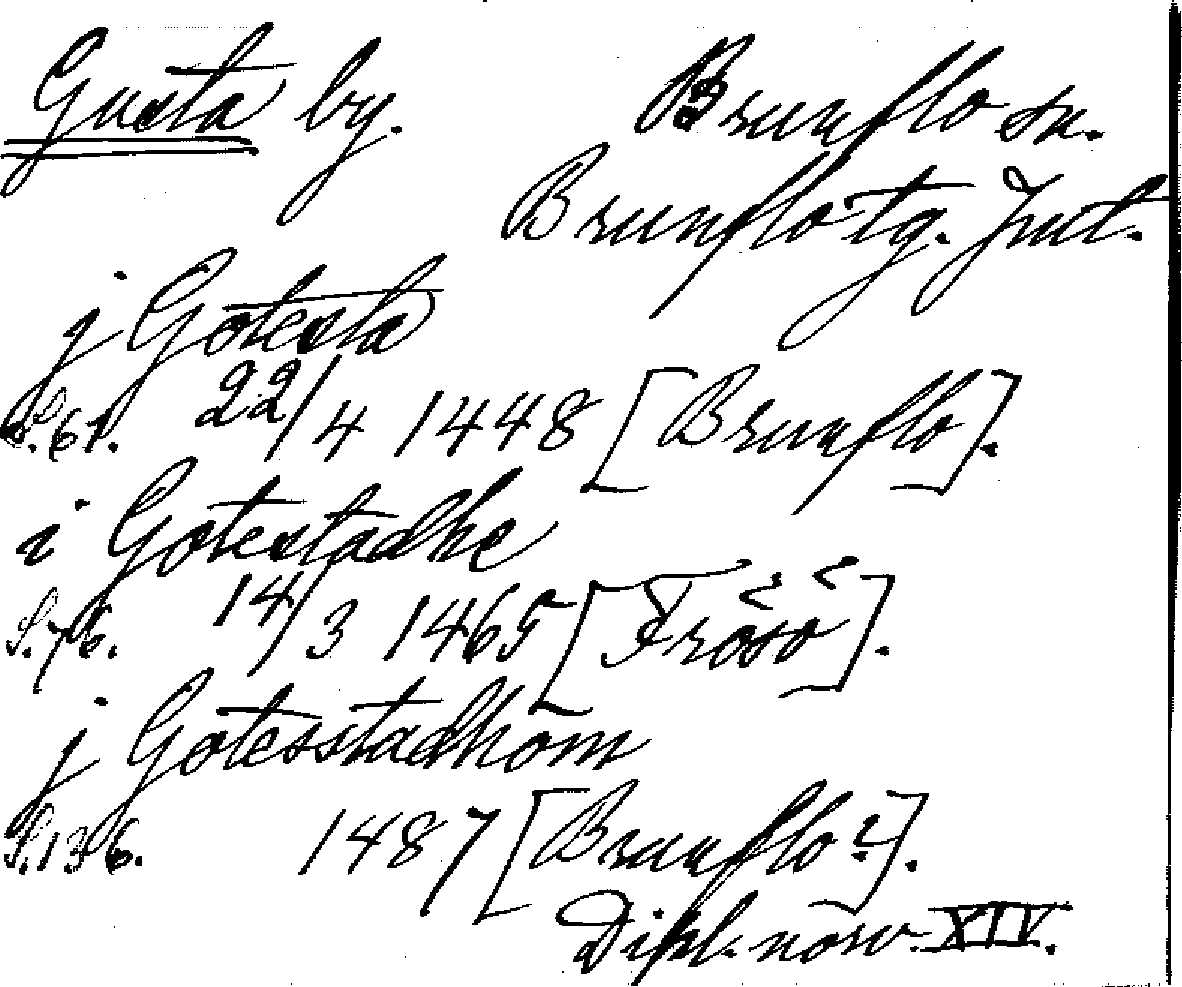 Gusta by. Brunflo sn.
Brunflo tg. Jmtl.
j Gotesta
S. 61. 22/4 1448 [Brunflo].
i Gotestadhe
S. 76. 14/3 1465 [Frösö].
j Gotesstadhom
S. 136. 1487 [Brunflo?].
Dipl. norv. XIV.